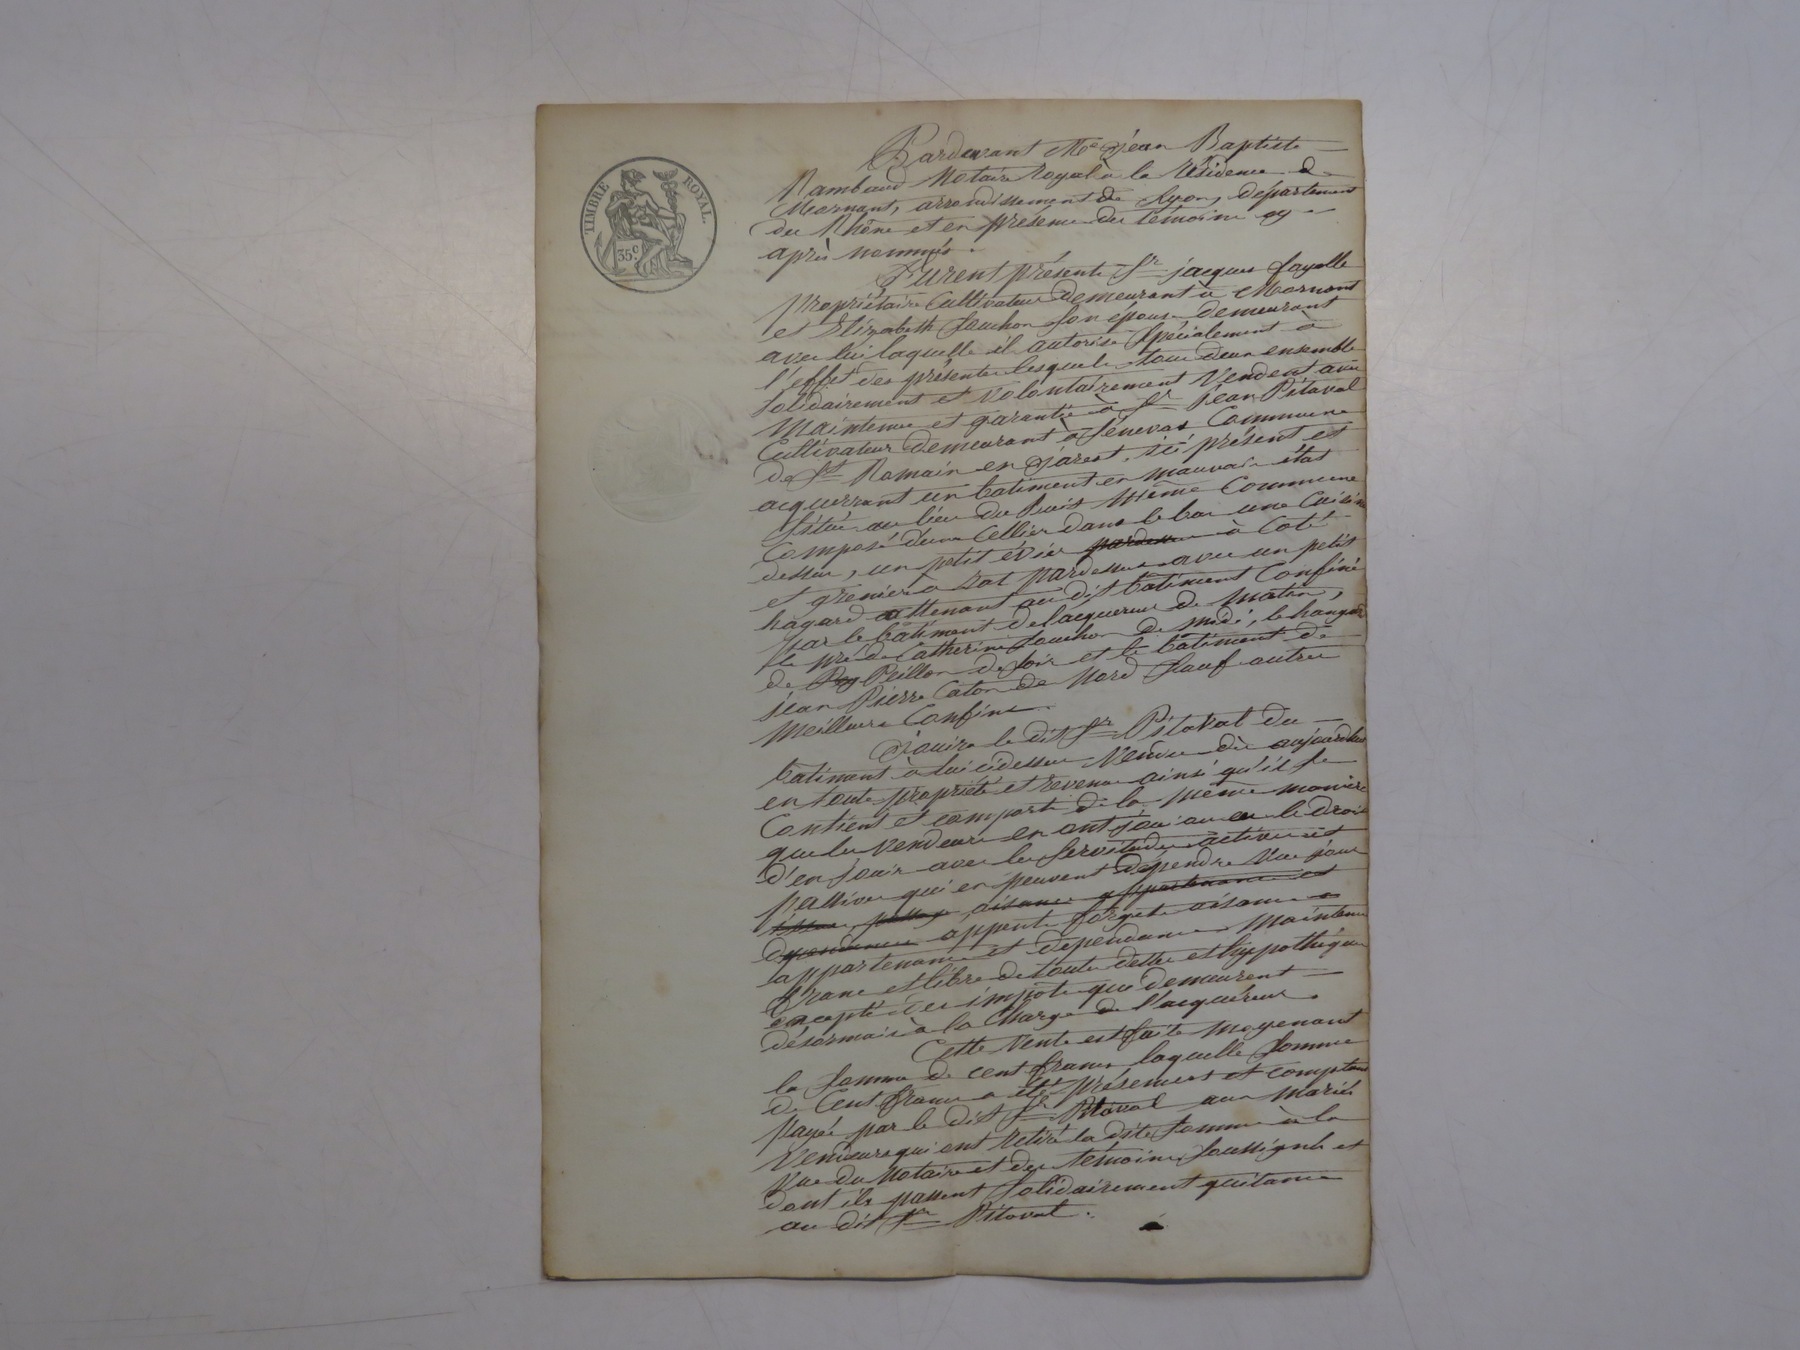 TIMBRE ROYAL.
35c
Pardevant Me jean Baptiste
Rambaud Notaire royal à la résidence de
Mornant, arrondissement de Lyon, département
du Rhône et en présence des témoins cy
après nommés.
Furent présents Sr jacques fayolle
propriétaire Cultivateur demeurant à Mornant
et Elizabeth Souchon son épouse demeurant
avec lui laquelle il autorise spécialement à
l'effet des présentes lesquels tous deux ensemble
solidairement et volontairement Vendent avec
Maintenue et garantie à Sr jean Pitaval
Cultivateur demeurant à Sénevas Commune
de St Romain en jarest ici présent et
acquerrant un batiment en mauvais état
situé au lieu du Puits Même Commune
Composé d'un Cellier dans le bas une Cuisine
dessus, un petit évier pardessus à Coté
et grenier à rat pardessus avec un petit
hagard attenant au dit batiment Confiné
par le bâtiment de l'acquereur de matin,
le pré de Catherine Souchon de midi, le hangard
de Pey Peillon de soir et le batiment de
jean Pierre Caton de Nord Sauf autres
Meilleurs Confins.
Jouira le dit Sr Pitaval du
batiment à lui cidessus Vendu dès aujourdhui
en toute propriété et revenu ainsi qu'il se
Contient et comporte de la même manière
que les Vendeurs en ont joui ou eu le droit
d'en jouir avec les servitudes actives et
passives qui en peuvent dépendre Vue jour
issues passage aisances appartenances et
dépendances appents forgets aisances
appartenances et dépendances Maintenu
franc et libre de toute dette et hypothéque
excepté des impots que demeurent
désormais à la Charge de l'acquéreur.
Cette Vente est faite Moyenant
la somme de cent francs laquelle somme
de Cent francs a été présement et comptant
payée par le dit Sr Pitaval aux mariés
Vendeurs qui ont retiré la dite somme à la
Vue du Notaire et des témoins soussignés et
dont ils passent solidairement quitance
au dit Sr Pitaval.